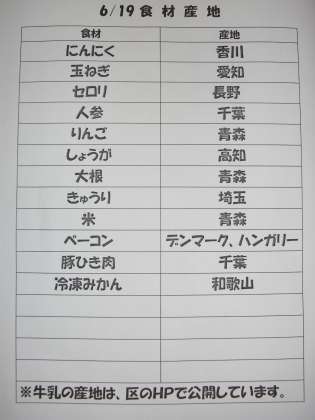 6/19 食材産地
食材 産地
にんにく 香川
玉ねぎ 愛知
セロリ 長野
人参 千葉
りんご 青森
しょうが 高知
大根 青森
きゅうり 埼玉
米 青森
ベーコン デンマーク、ハンガリー
豚ひき肉 千葉
冷凍みかん 和歌山
※牛乳の産地は、区のHPで公開しています。